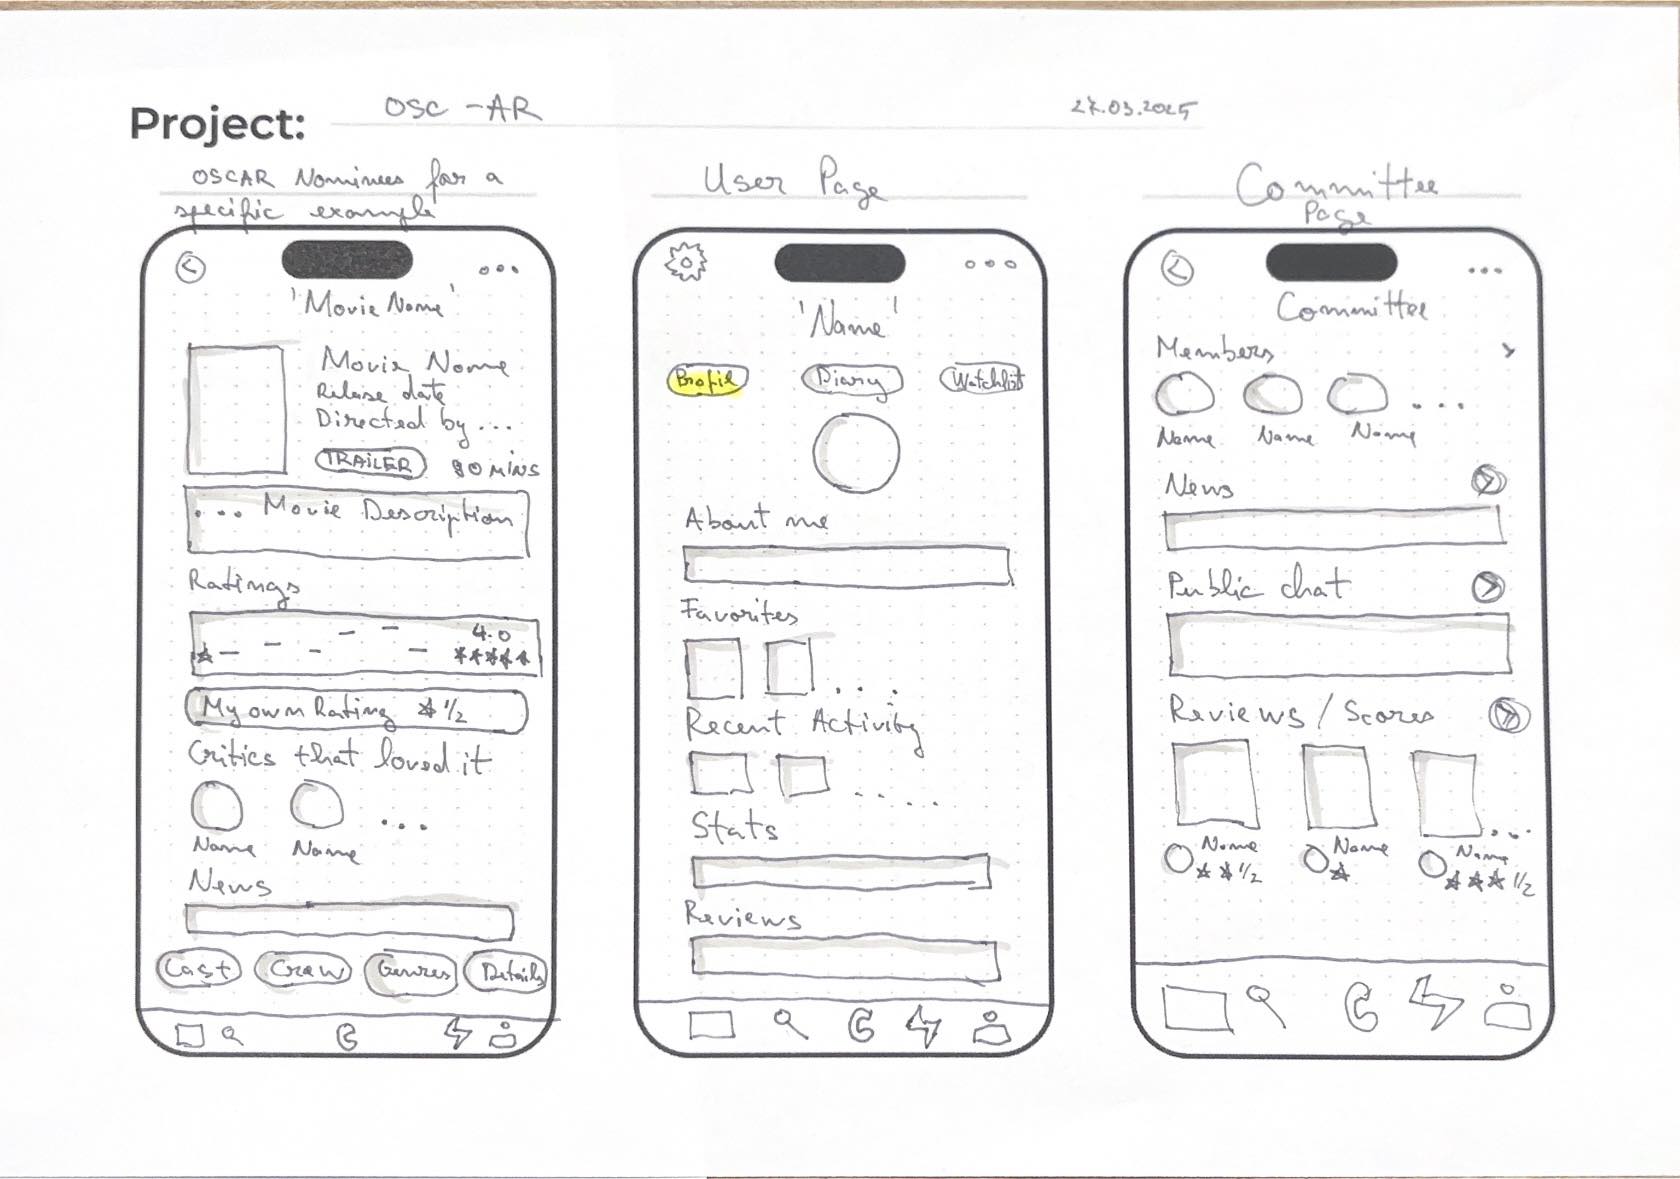 Project: OSC -AR
27.03.2025
OSCAR Nominees for a
specific example
'Movie Name'
Movie Name
Release date
Directed by ...
TRAILER 90 MINS
... Movie Description
Ratings
4.0
My own Rating ½
Critics that loved it
Name Name ...
News
Cast Crew Genres Details
User Page
'Name'
Profil Diary Watchlist
About me
Favorites
....
Recent Activity
.....
Stats
Reviews
Committee
Page
Committee
Members
...
Name Name Name
News
Public chat
Reviews / Scores
...
Name Name Name
½ ½